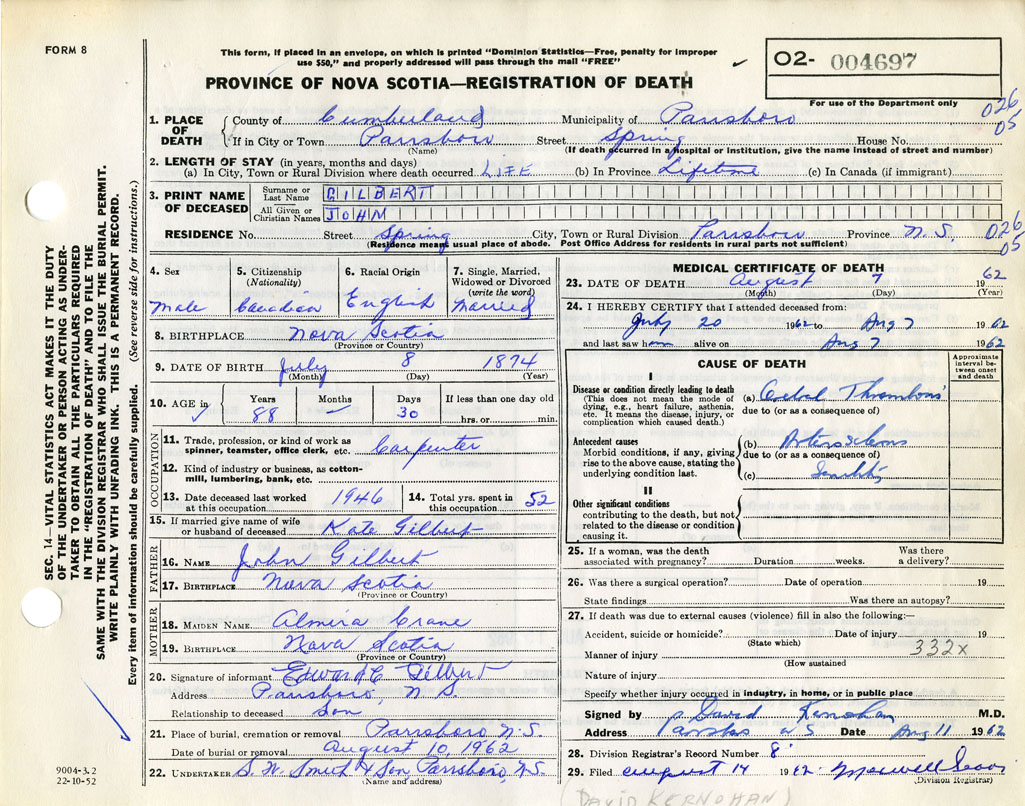 FORM 8
This form, if placed in an envelope, on which is printed "Dominion Statistics—Free, penalty for improper
use $50," and properly addressed will pass through the mail "FREE"
PROVINCE OF NOVA SCOTIA—REGISTRATION OF DEATH
O2- 004697
For use of the Department only
026
05
1. PLACE OF DEATH County of Cumberland Municipality of Parrsboro
If in City or Town Parrsboro Street Spring House No.
(Name) (If death occurred in a hospital or institution, give the name instead of street and number)
2. LENGTH OF STAY (in years, months and days)
(a) In City, Town or Rural Division where death occurred LIFE (b) In Province Lifetime (c) In Canada (if immigrant)
3. PRINT NAME OF DECEASED Surname or Last Name GILBERT
All Given or Christian Names JOHN
RESIDENCE No. Street Spring City, Town or Rural Division Parrsboro Province N.S. 026
05
(Residence means usual place of abode. Post Office Address for residents in rural parts not sufficient)
4. Sex Male
5. Citizenship (Nationality) Canadian
6. Racial Origin English
7. Single, Married, Widowed or Divorced (write the word) Married
8. BIRTHPLACE Nova Scotia
(Province or Country)
9. DATE OF BIRTH July 8 1874
(Month) (Day) (Year)
10. AGE in Years 88 Months — Days 30 If less than one day old hrs. or min.
OCCUPATION
11. Trade, profession, or kind of work as spinner, teamster, office clerk, etc. Carpenter
12. Kind of industry or business, as cotton-mill, lumbering, bank, etc.
13. Date deceased last worked at this occupation 1946
14. Total yrs. spent in this occupation 52
15. If married give name of wife or husband of deceased Kate Gilbert
FATHER
16. NAME John Gilbert
17. BIRTHPLACE Nova Scotia
(Province or Country)
MOTHER
18. MAIDEN NAME Almira Crane
19. BIRTHPLACE Nova Scotia
(Province or Country)
20. Signature of informant Edward C Gilbert
Address Parrsboro, N S
Relationship to deceased Son
21. Place of burial, cremation or removal Parrsboro N.S.
Date of burial or removal August 10, 1962
22. UNDERTAKER S. W. Smith & Son, Parrsboro N.S.
(Name and address)
MEDICAL CERTIFICATE OF DEATH
23. DATE OF DEATH August 7 1962
(Month) (Day) (Year)
24. I HEREBY CERTIFY that I attended deceased from:
July 20 1962 to Aug 7 1962
and last saw him alive on Aug 7 1962
CAUSE OF DEATH
Approximate interval between onset and death
I
Disease or condition directly leading to death
(This does not mean the mode of dying, e.g., heart failure, asthenia, etc. It means the disease, injury, or complication which caused death.)
(a) Cerebral Thrombosis
due to (or as a consequence of)
Antecedent causes
Morbid conditions, if any, giving rise to the above cause, stating the underlying condition last.
(b) Arteriosclerosis
due to (or as a consequence of)
(c) Senility
II
Other significant conditions
contributing to the death, but not related to the disease or condition causing it.
25. If a woman, was the death associated with pregnancy? Duration weeks. Was there a delivery?
26. Was there a surgical operation? Date of operation 19
State findings Was there an autopsy?
27. If death was due to external causes (violence) fill in also the following:—
Accident, suicide or homicide? Date of injury 19
(State which)
Manner of injury 332x
(How sustained)
Nature of injury
Specify whether injury occurred in industry, in home, or in public place
Signed by David Kernohan M.D.
Address Parrsboro N S Date Aug 11 1962
28. Division Registrar's Record Number 8
29. Filed August 14 1962 Maxwell
(Division Registrar)
(DAVID KERNOHAN)
SEC. 14—VITAL STATISTICS ACT MAKES IT THE DUTY
OF THE UNDERTAKER OR PERSON ACTING AS UNDER-
TAKER TO OBTAIN ALL THE PARTICULARS REQUIRED
IN THE "REGISTRATION OF DEATH" AND TO FILE THE
SAME WITH THE DIVISION REGISTRAR WHO SHALL ISSUE THE BURIAL PERMIT.
WRITE PLAINLY WITH UNFADING INK. THIS IS A PERMANENT RECORD.
Every item of information should be carefully supplied. (See reverse side for instructions.)
9004-3.2
22-10-52